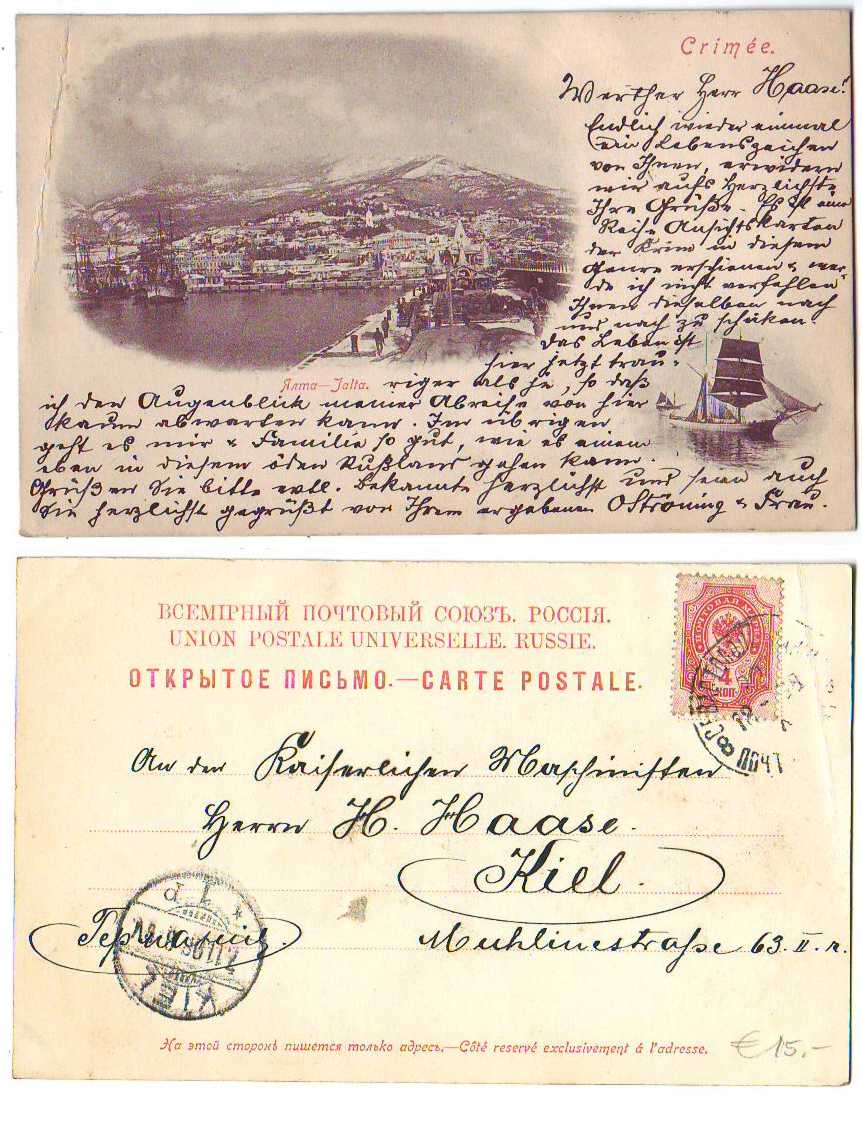 Crimée.
Werther Herr Haase!
Endlich wieder einmal
ein Lebenszeichen
von Ihnen, erwidern
wir aufs Herzlichste
Ihre Grüße. Es ist eine
Reihe Ansichtskarten
der Krim in diesem
Genre erschienen & wer-
de ich nicht verfehlen
Ihnen dieselben nach
und nach zu schicken.
Das Leben ist
hier jetzt trau-
Ялта—Jalta.
riger als je, so daß
ich den Augenblick meiner Abreise von hier
kaum abwarten kann. Im übrigen
geht es mir & Familie so gut, wie es einem
eben in diesem öden Rußland gehen kann.
Grüßen Sie bitte evtl. Bekannte herzlichst und seien auch
Sie herzlichst gegrüßt von Ihrem ergebenen OStröning & Frau.
ВСЕМІРНЫЙ ПОЧТОВЫЙ СОЮЗЪ. РОССІЯ.
UNION POSTALE UNIVERSELLE. RUSSIE.
ОТКРЫТОЕ ПИСЬМО.—CARTE POSTALE.
ПОЧТОВАЯ МАРКА
4
КОП.
СЕВАСТОПОЛЬ
ПОЧТ
An den Kaiserlichen Maschinisten
Herrn H. Haase.
Kiel.
Германія
Muhlinestraße 63. II. r.
KIEL
На этой сторонѣ пишется только адресъ.—Côté reservé exclusivement á l'adresse.
€ 15.-